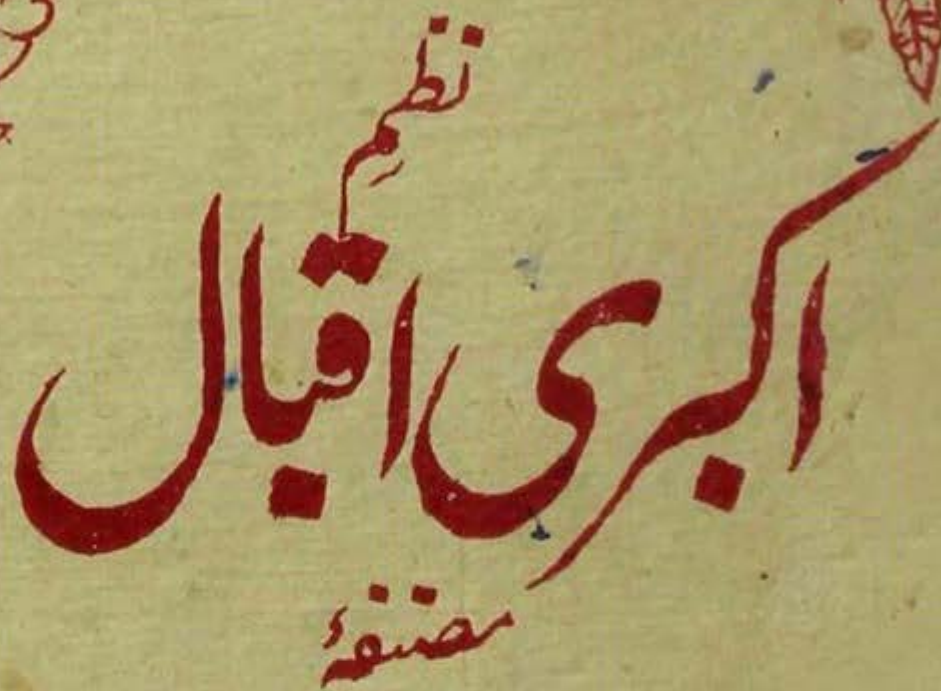 نظمِ
اکبری اقبال
مصنفۂ